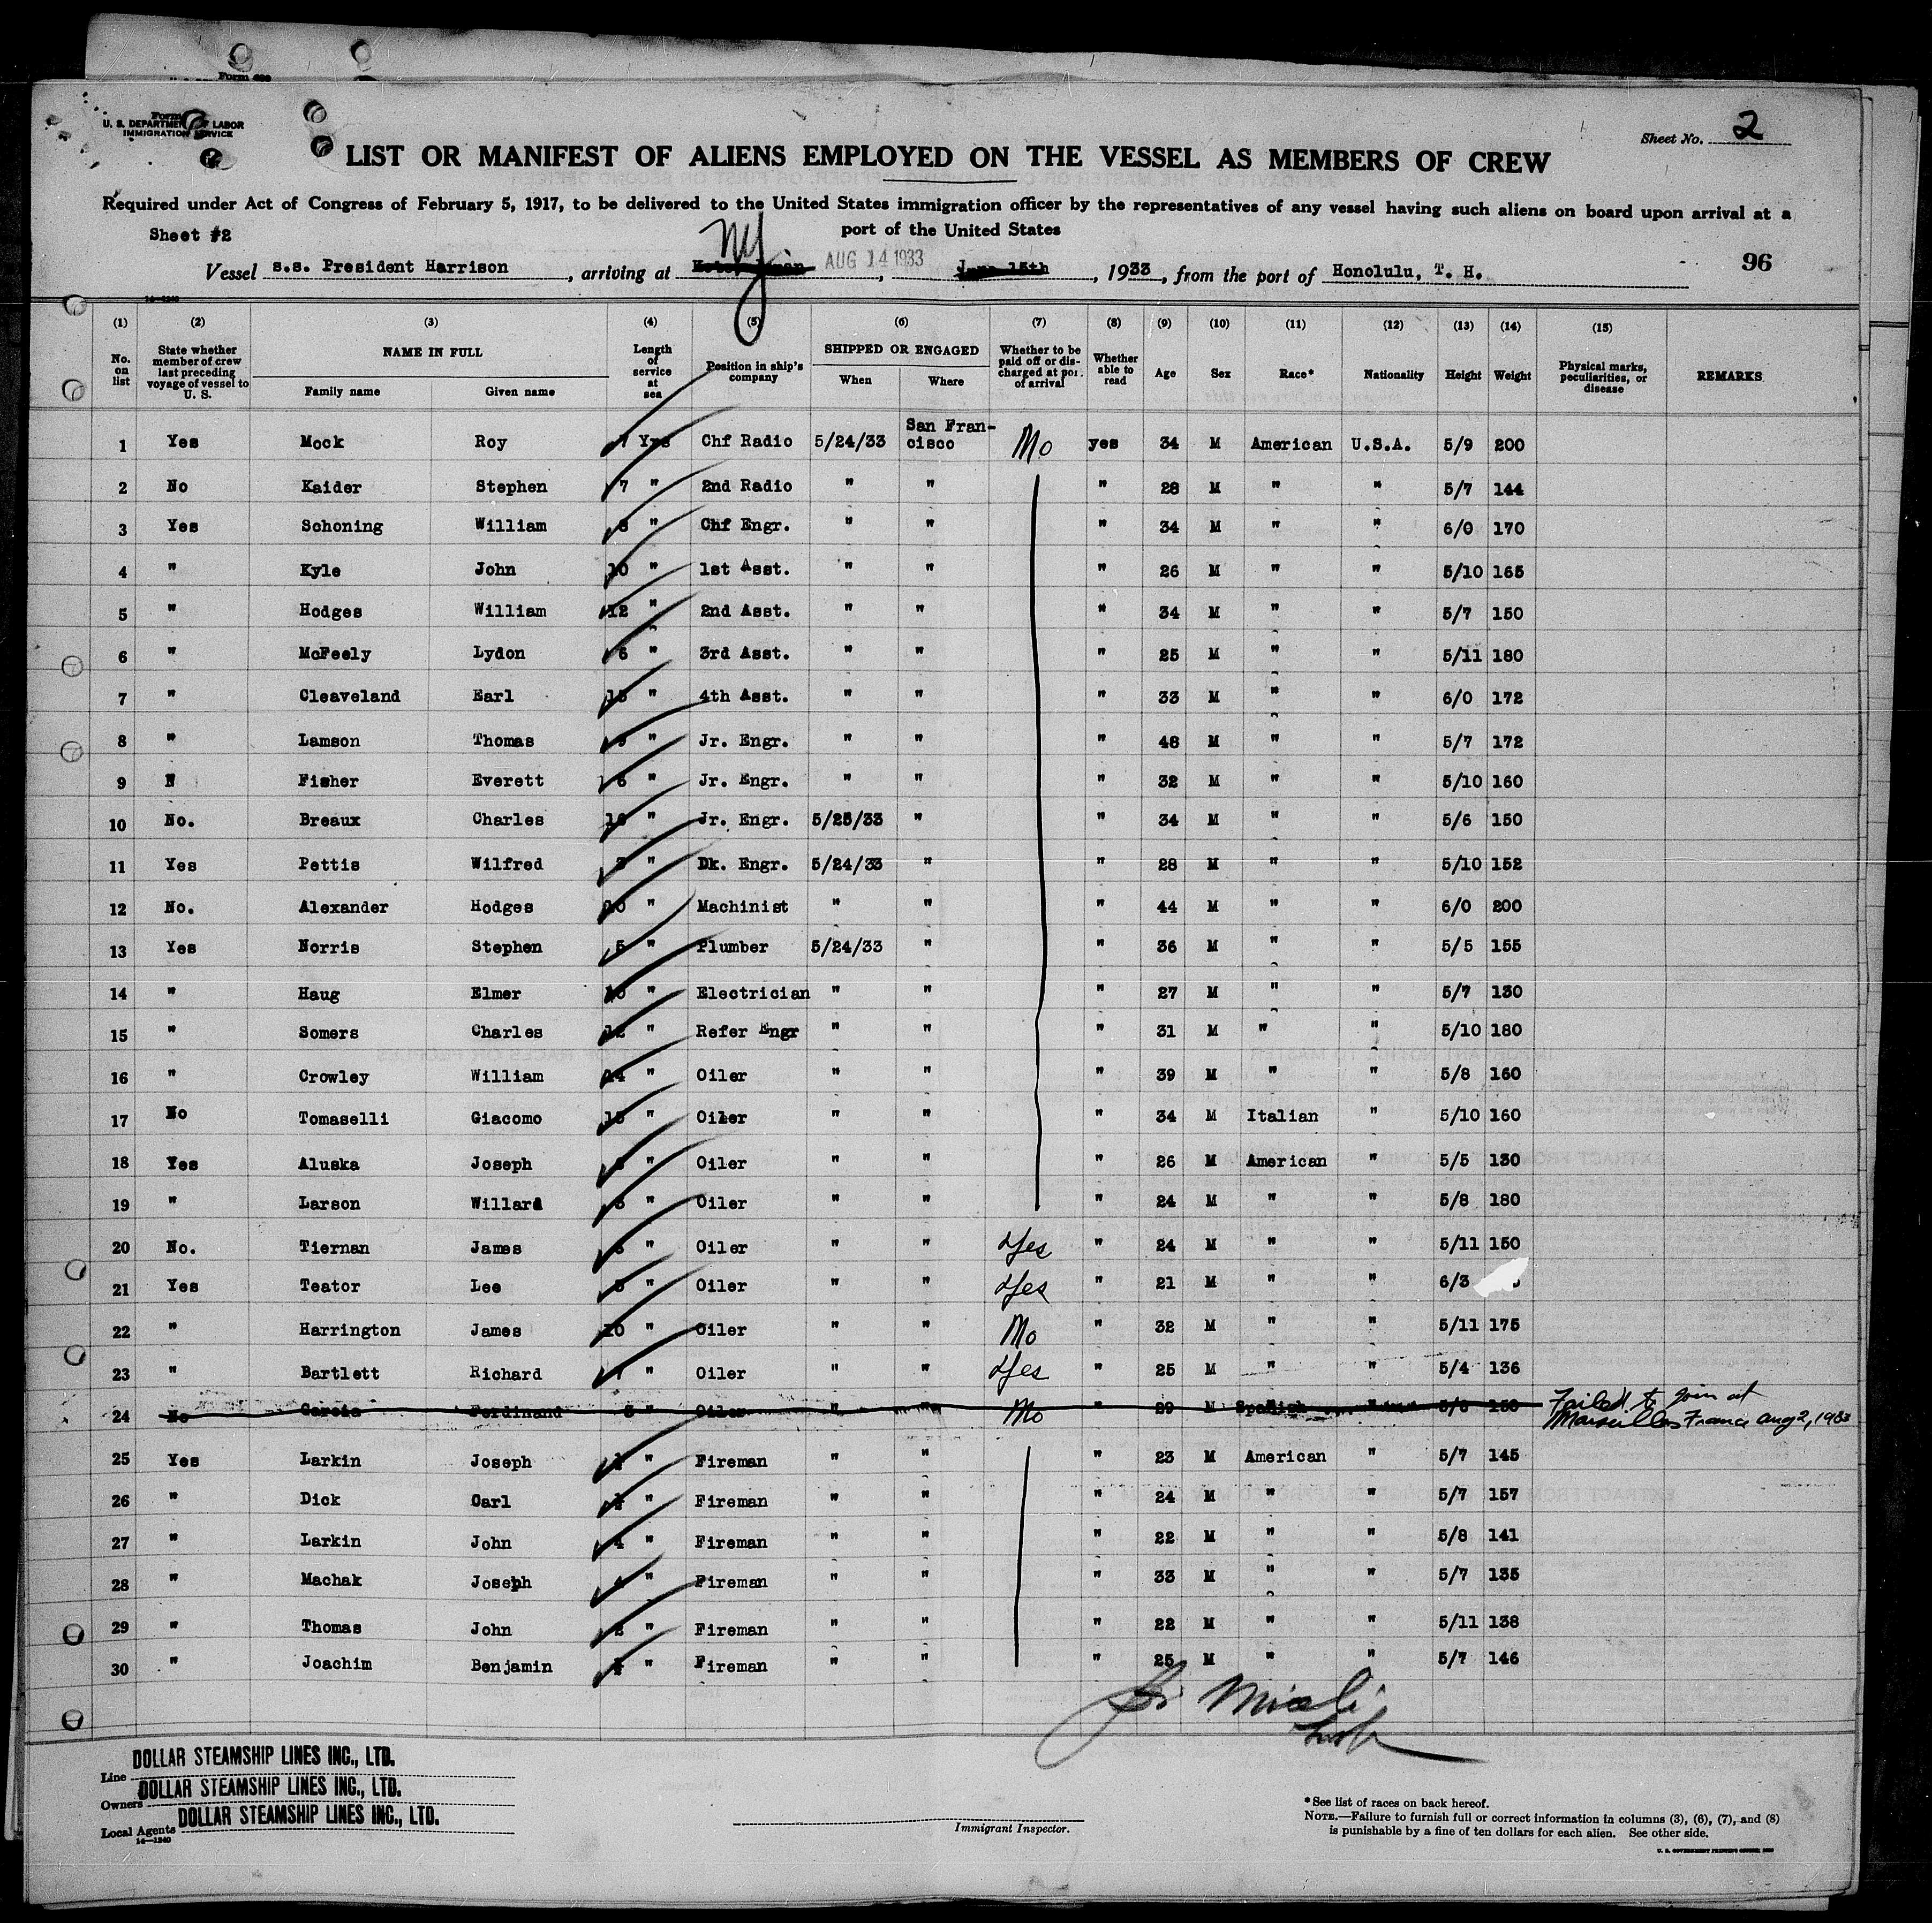 Form 680
Form
U. S. DEPARTMENT OF LABOR
IMMIGRATION SERVICE
Sheet No. 2
LIST OR MANIFEST OF ALIENS EMPLOYED ON THE VESSEL AS MEMBERS OF CREW
Required under Act of Congress of February 5, 1917, to be delivered to the United States immigration officer by the representatives of any vessel having such aliens on board upon arrival at a
port of the United States
Sheet #2
Vessel s.s. President Harrison, arriving at NY AUG 14 1933, June 15th, 1933, from the port of Honolulu, T. H. 96
14-1240
(1) (2) (3) (4) (5) (6) (7) (8) (9) (10) (11) (12) (13) (14) (15)
No. on list State whether member of crew last preceding voyage of vessel to U. S. NAME IN FULL Family name Given name Length of service at sea Position in ship's company SHIPPED OR ENGAGED When Where Whether to be paid off or discharged at port of arrival Whether able to read Age Sex Race* Nationality Height Weight Physical marks, peculiarities, or disease REMARKS
1 Yes Mock Roy 7 Yrs Chf Radio 5/24/33 San Francisco No yes 34 M American U.S.A. 5/9 200
2 No Kaider Stephen 7 " 2nd Radio " " " 28 M " " 5/7 144
3 Yes Schoning William 8 " Chf Engr. " " " 34 M " " 6/0 170
4 " Kyle John 10 " 1st Asst. " " " 26 M " " 5/10 165
5 " Hodges William 12 " 2nd Asst. " " " 34 M " " 5/7 150
6 " McFeely Lydon 6 " 3rd Asst. " " " 25 M " " 5/11 180
7 " Cleaveland Earl " 4th Asst. " " " 33 M " " 6/0 172
8 " Lamson Thomas 9 " Jr. Engr. " " " 48 M " " 5/7 172
9 N Fisher Everett 6 " Jr. Engr. " " " 32 M " " 5/10 160
10 No. Breaux Charles " Jr. Engr. 5/25/33 " " 34 M " " 5/6 150
11 Yes Pettis Wilfred " Dk. Engr. 5/24/33 " " 28 M " " 5/10 152
12 No. Alexander Hodges 20 " Machinist " " " 44 M " " 6/0 200
13 Yes Norris Stephen 5 " Plumber 5/24/33 " " 36 M " " 5/5 155
14 " Haug Elmer 10 " Electrician " " " 27 M " " 5/7 130
15 " Somers Charles 12 " Refer Engr " " " 31 M " " 5/10 180
16 " Crowley William 14 " Oiler " " " 39 M " " 5/8 160
17 No Tomaselli Giacomo " Oiler " " " 34 M Italian " 5/10 160
18 Yes Aluska Joseph " Oiler " " " 26 M American " 5/5 130
19 " Larson Willard " Oiler " " " 24 M " " 5/8 180
20 No. Tiernan James " Oiler " " Yes " 24 M " " 5/11 150
21 Yes Teator Lee " Oiler " " Yes " 21 M " " 6/3
22 " Harrington James 10 " Oiler " " No " 32 M " " 5/11 175
23 " Bartlett Richard " Oiler " " Yes " 25 M " " 5/4 136
24 No Garcia Ferdinand " Oiler " " No " 29 M Spanish 150 Failed to join at Marseilles France Aug 2, 1933
25 Yes Larkin Joseph " Fireman " " " 23 M American " 5/7 145
26 " Dick Carl " Fireman " " " 24 M " " 5/7 157
27 " Larkin John 4 " Fireman " " " 22 M " " 5/8 141
28 " Machak Joseph 4 " Fireman " " " 33 M " " 5/7 135
29 " Thomas John 2 " Fireman " " " 22 M " " 5/11 138
30 " Joachim Benjamin " Fireman " " " 25 M " " 5/7 146
Line DOLLAR STEAMSHIP LINES INC., LTD.
Owners DOLLAR STEAMSHIP LINES INC., LTD.
Local Agents DOLLAR STEAMSHIP LINES INC., LTD.
14-1240
Immigrant Inspector.
*See list of races on back hereof.
NOTE.—Failure to furnish full or correct information in columns (3), (6), (7), and (8)
is punishable by a fine of ten dollars for each alien. See other side.